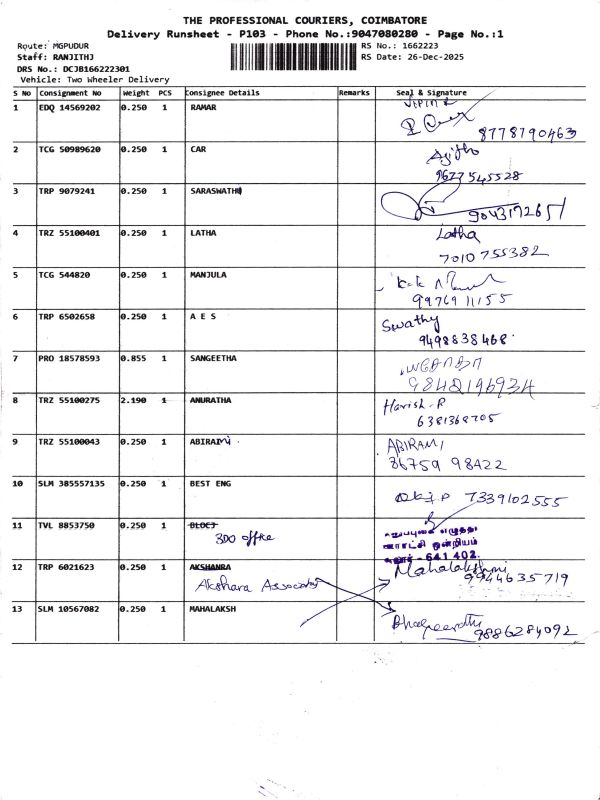 THE PROFESSIONAL COURIERS, COIMBATORE
Delivery Runsheet - P103 - Phone No.:9047080280 - Page No.:1
Route: MGPUDUR
RS No.: 1662223
Staff: RANJITHJ
RS Date: 26-Dec-2025
DRS No.: DCJB166222301
Vehicle: Two Wheeler Delivery
S No Consignment No Weight PCS Consignee Details Remarks Seal & Signature
1 EDQ 14569202 0.250 1 RAMAR
8778790463
2 TCG 50989620 0.250 1 CAR
Ajitha
9677545528
3 TRP 9079241 0.250 1 SARASWATHI
9043172651
4 TRZ 55100401 0.250 1 LATHA Latha
7010 755382
5 TCG 544820 0.250 1 MANJULA
99769 11155
6 TRP 6502658 0.250 1 A E S
Swathy
9498838468
7 PRO 18578593 0.855 1 SANGEETHA
9842196934
8 TRZ 55100275 2.190 1 ANURATHA Harish.R
6381368705
9 TRZ 55100043 0.250 1 ABIRAMI ABIRAMI
86759 98422
10 SLM 385557135 0.250 1 BEST ENG
7339102555
11 TVL 8853750 0.250 1 BLOCJ
BDO office
- 641 402.
12 TRP 6021623 0.250 1 AKSHANRA Mahalakshmi
Akshara Associates 9944635719
13 SLM 10567082 0.250 1 MAHALAKSH
9886284092